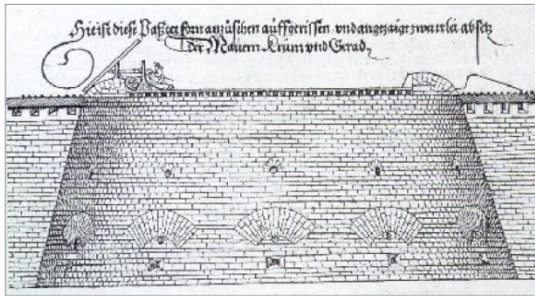 Hie ist diese Pastey forn anzusehen auffgerissen vnd angezaigt zwaierlei absetz
der Mauern Krum vnd Gerad,